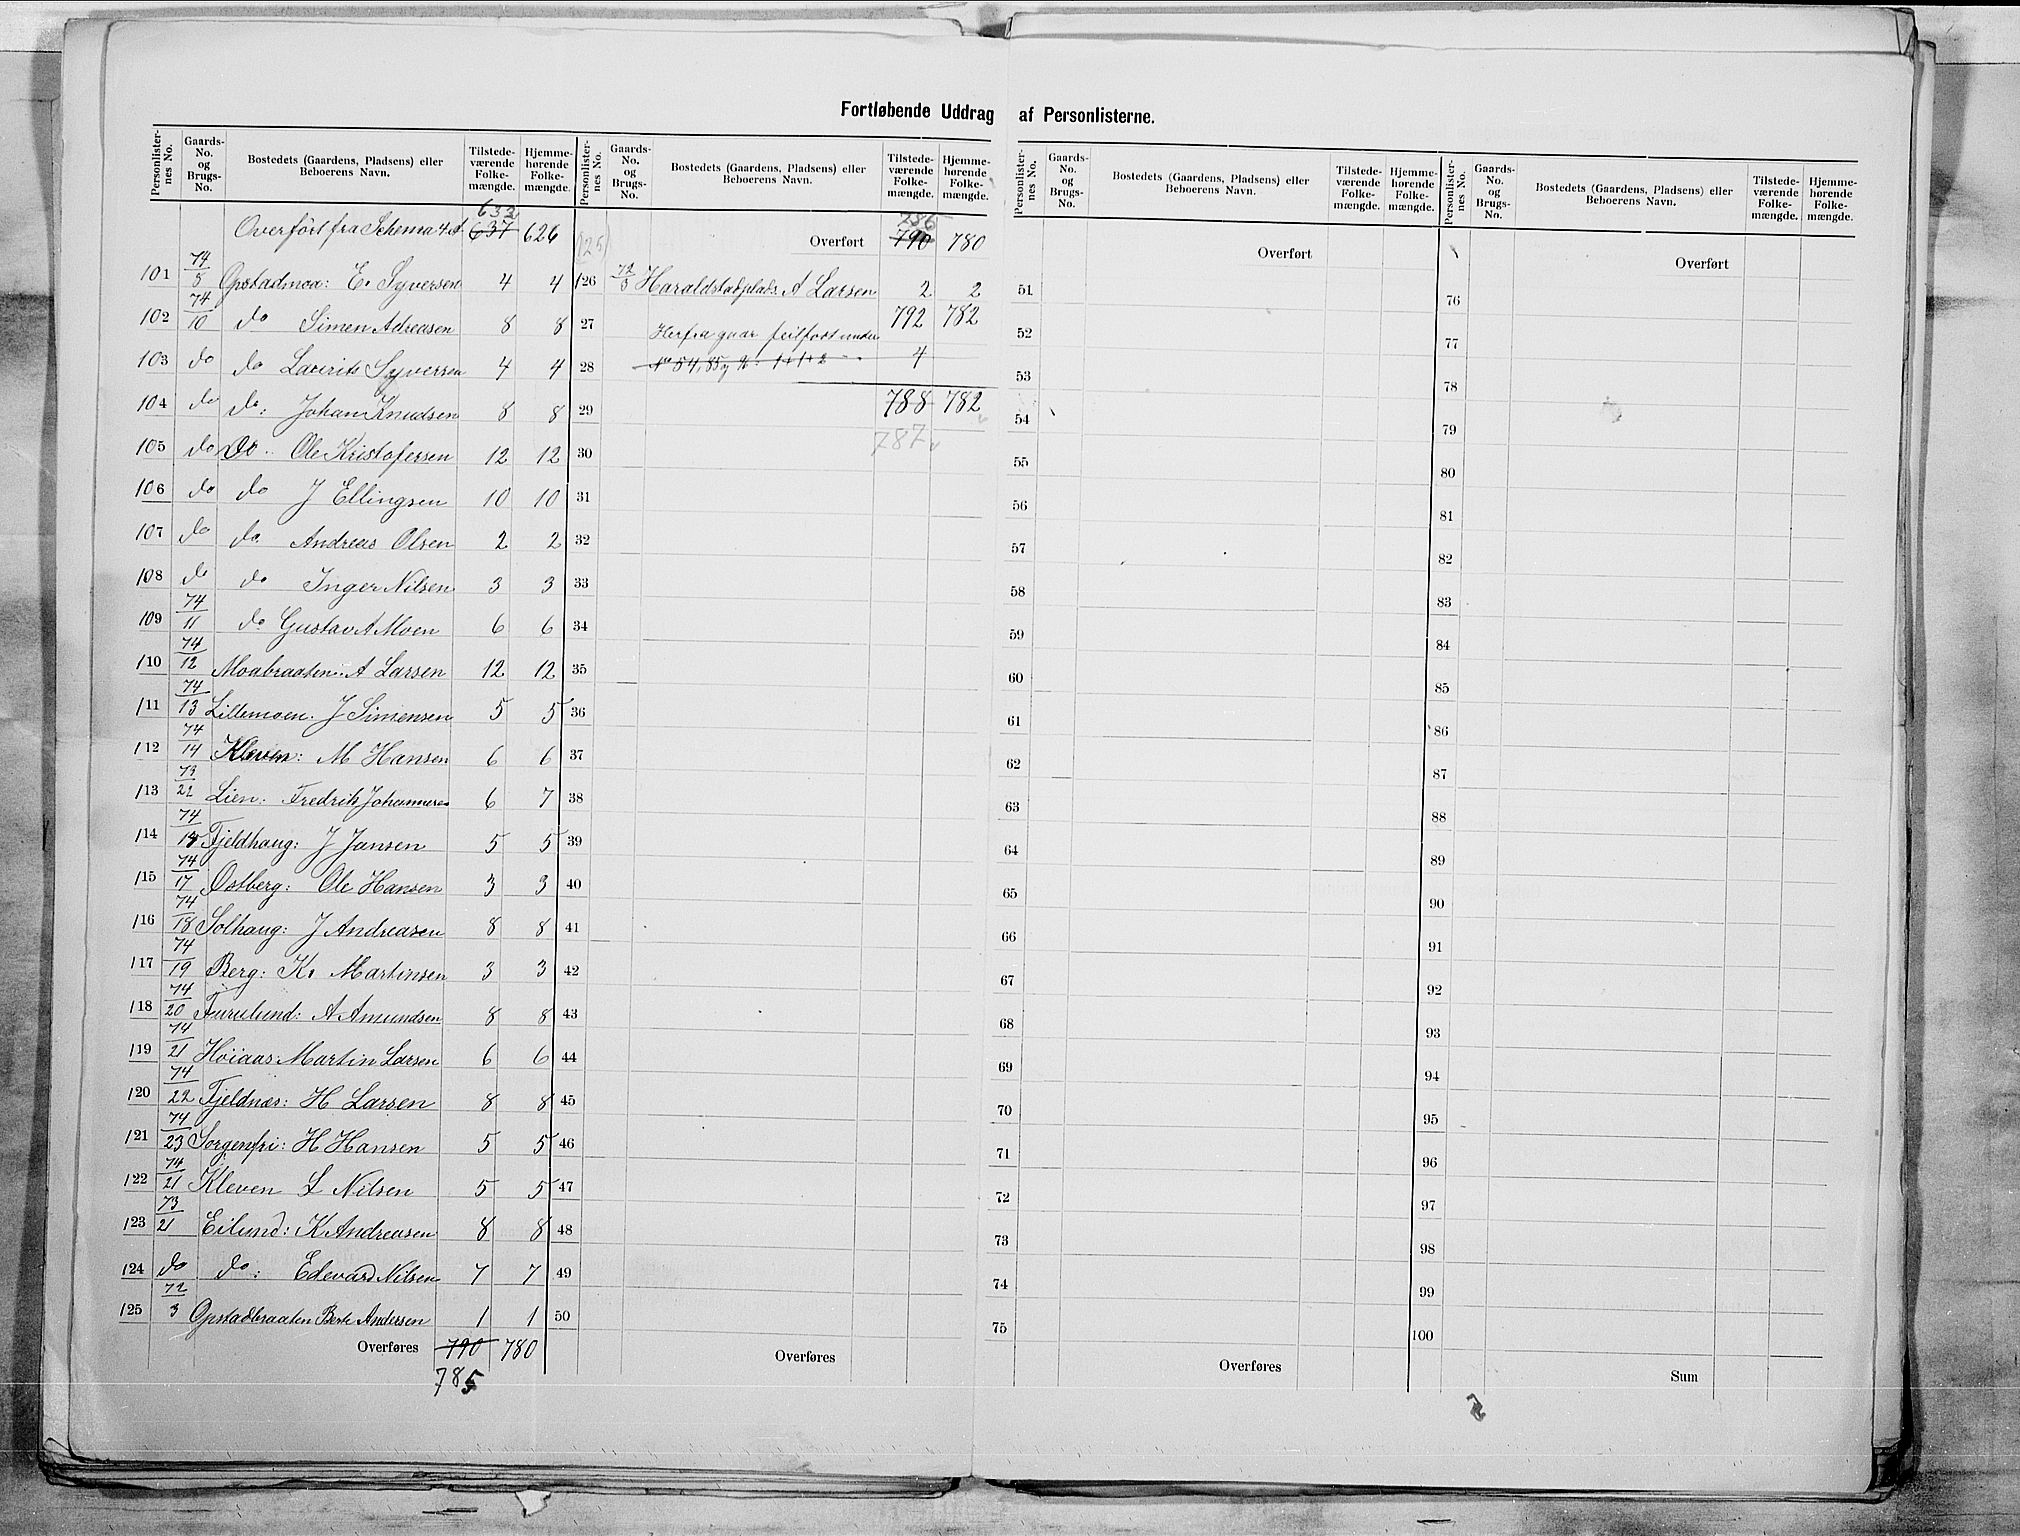 Fortløbende Uddrag af Personlisterne.
Personlister-nes No. | Gaards-No. og Brugs-No. | Bostedets (Gaardens, Pladsens) eller Beboerens Navn. | Tilstede-værende Folke-mængde. | Hjemme-hørende Folke-mængde.
Overført fra Schema 4 A 637 632 626
101 74/8 Opstadmoa: E. Syversen 4 4
102 74/10 do Simen Adreasen 8 8
103 do do Laurits Syversen 4 4
104 do do: Johan Knudsen 8 8
105 do Do Ole Kristofersen 12 12
106 do do J Ellingsen 10 10
107 do do Andreas Olsen 2 2
108 do do Inger Nilsen 3 3
109 74/11 do Gustav A Moen 6 6
110 74/12 Moabraaten: A Larsen 12 12
111 74/13 Lillemoen: J Simensen 5 5
112 74/14 Kleven: M Hansen 6 6
113 73/22 Lien: Fredrik Johannesen 6 7
114 74/15 Fjeldhaug: J Jansen 5 5
115 74/17 Østberg: Ole Hansen 3 3
116 74/18 Solhaug: J Andreasen 8 8
117 74/19 Berg: K. Martinsen 3 3
118 74/20 Furulund: A Amundsen 8 8
119 74/21 Høiaas: Martin Larsen 6 6
120 74/22 Fjeldnæs: H Larsen 8 8
121 74/23 Sorgenfri: H Hansen 5 5
122 74/21 Kleven L Nilsen 5 5
123 73/21 Eilund: K Andreasen 8 8
124 do do: Edevard Nilsen 7 7
125 72/3 Opstadbraaten Berte Andersen 1 1
Overføres 790 780
785
Personlister-nes No. | Gaards-No. og Brugs-No. | Bostedets (Gaardens, Pladsens) eller Beboerens Navn. | Tilstede-værende Folke-mængde. | Hjemme-hørende Folke-mængde.
(125) Overført 790 786 780
126 72/3 Haraldstadplads. A Larsen 2 2
27 792 782
Herfra gaar feilført under
28 No 54, 85 og 1+1+2 4
29 788 782
30 787
31
32
33
34
35
36
37
38
39
40
41
42
43
44
45
46
47
48
49
50
Overføres
Personlister-nes No. | Gaards-No. og Brugs-No. | Bostedets (Gaardens, Pladsens) eller Beboerens Navn. | Tilstede-værende Folke-mængde. | Hjemme-hørende Folke-mængde.
Overført
51
52
53
54
55
56
57
58
59
60
61
62
63
64
65
66
67
68
69
70
71
72
73
74
75
Overføres
Personlister-nes No. | Gaards-No. og Brugs-No. | Bostedets (Gaardens, Pladsens) eller Beboerens Navn. | Tilstede-værende Folke-mængde. | Hjemme-hørende Folke-mængde.
Overført
76
77
78
79
80
81
82
83
84
85
86
87
88
89
90
91
92
93
94
95
96
97
98
99
100
Sum